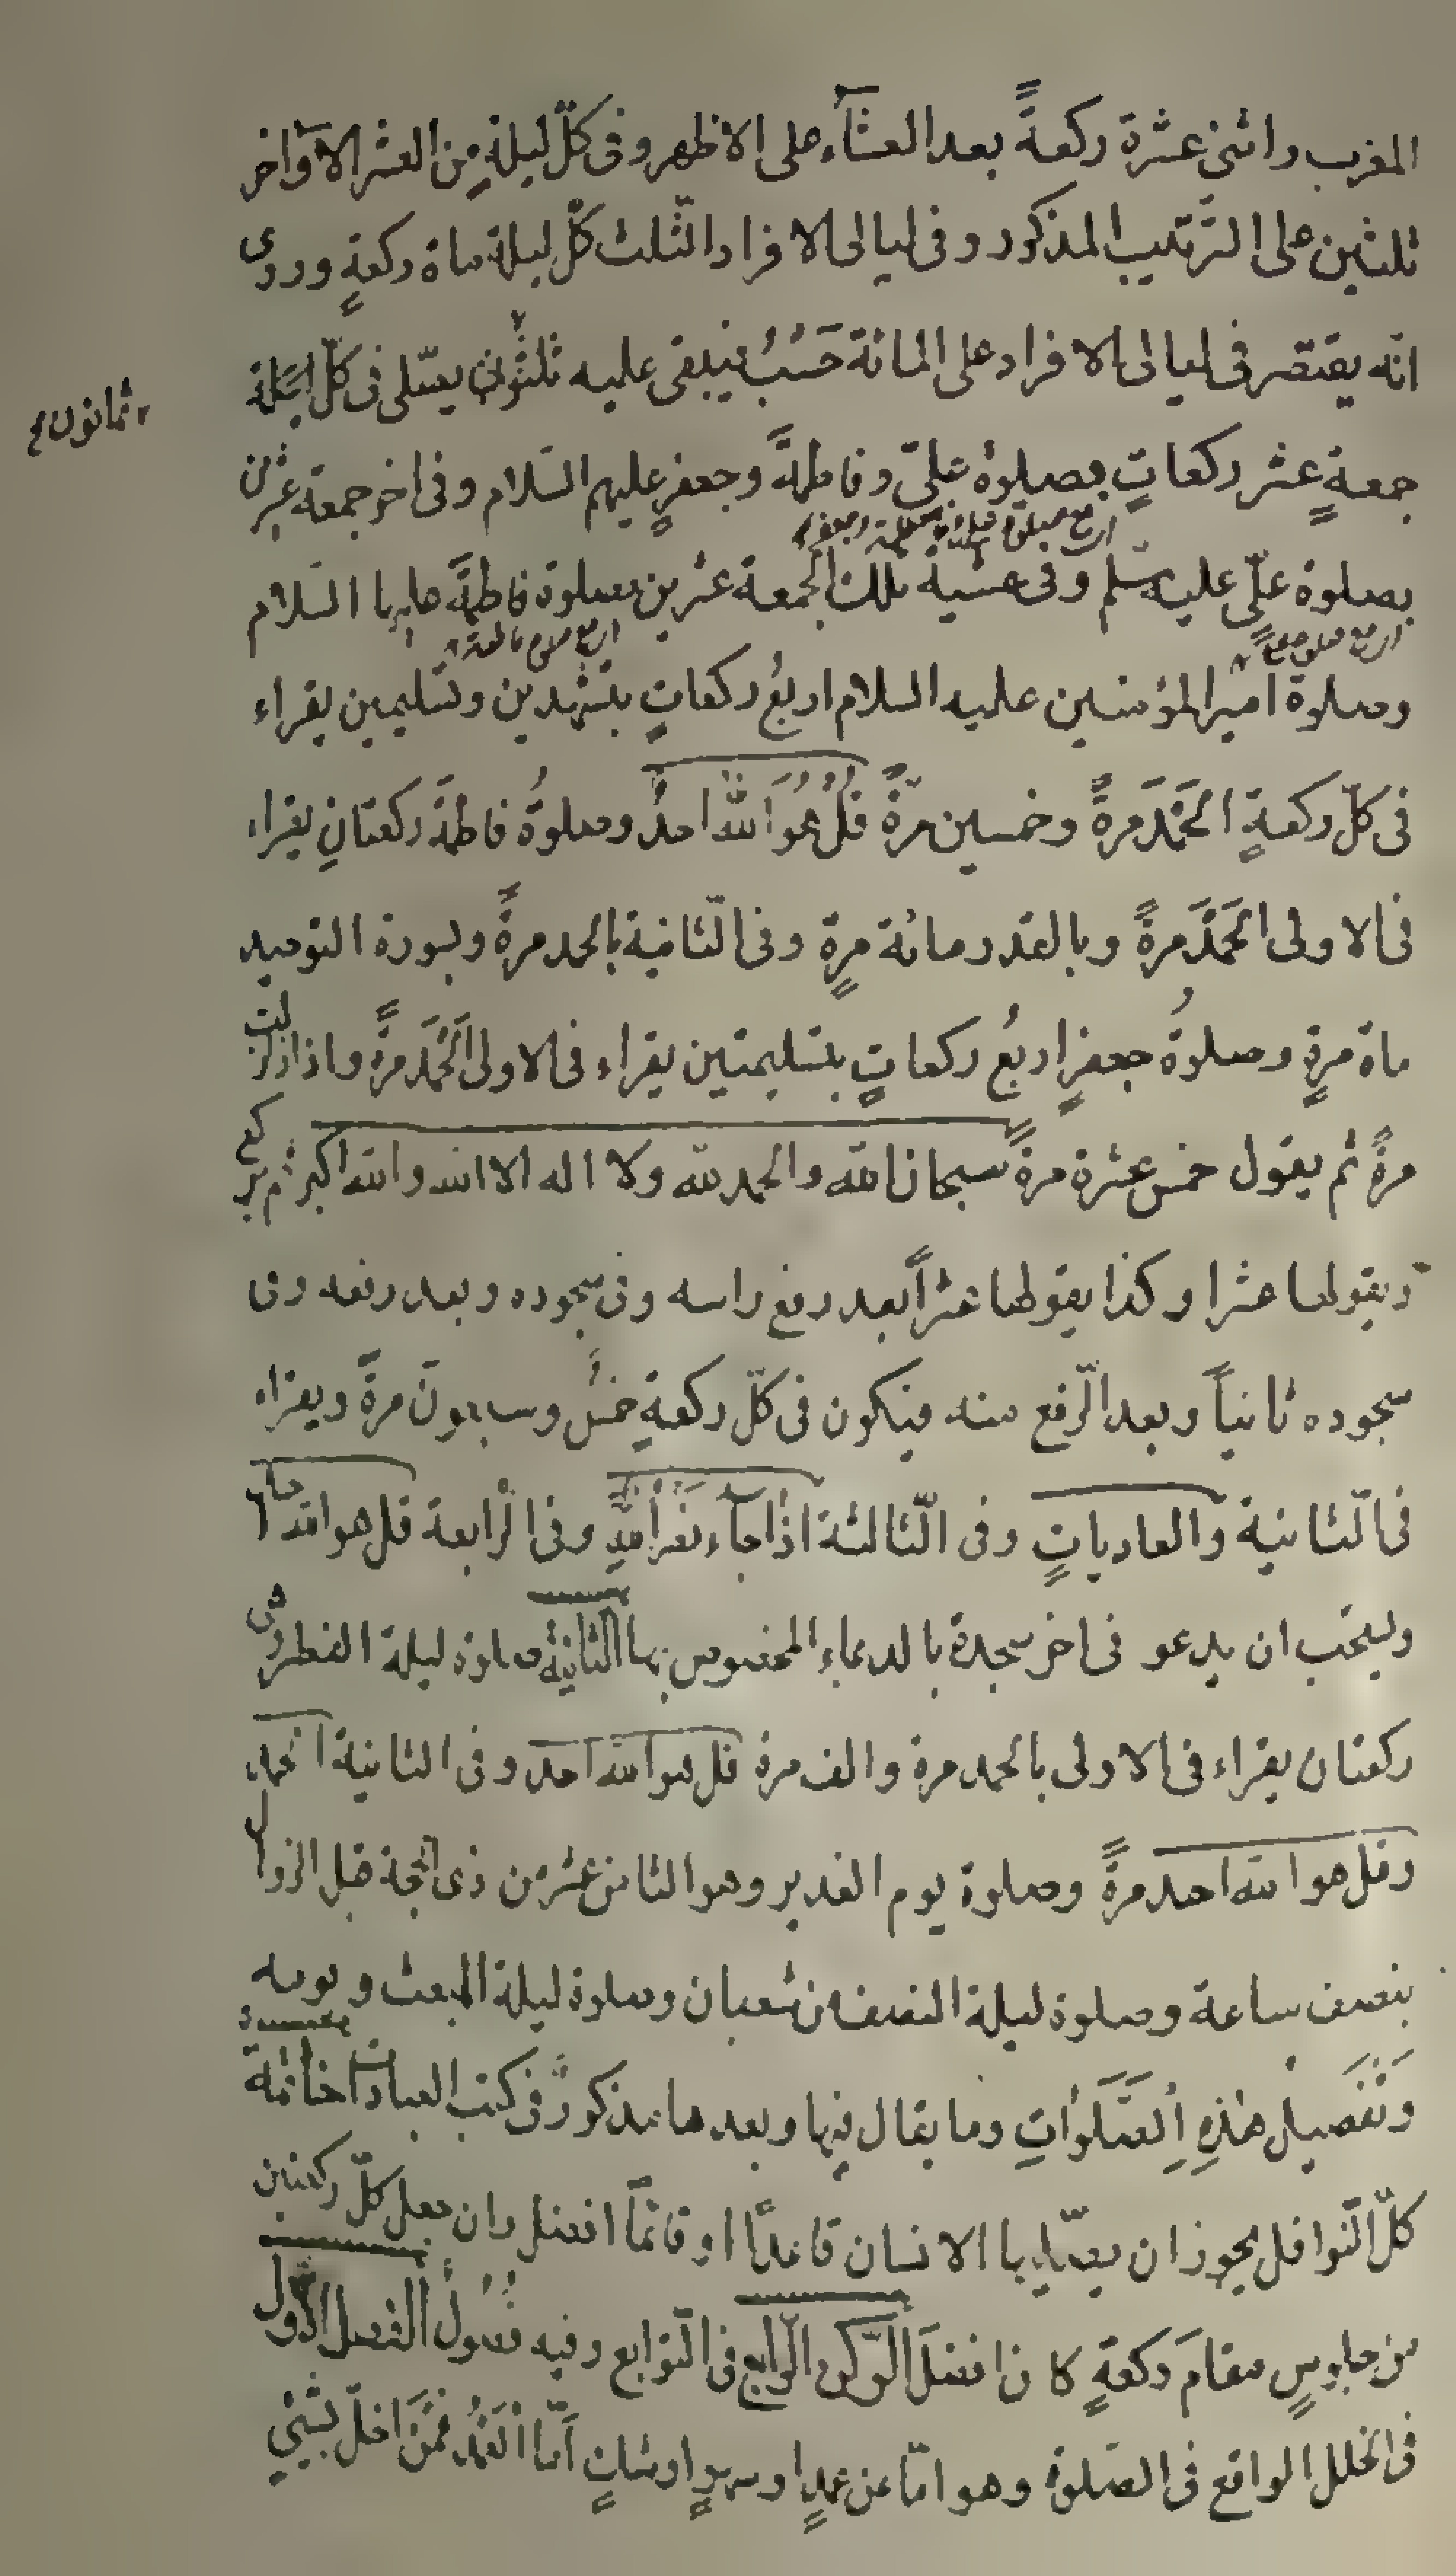 المغرب واثنى عشرة ركعةً بعد العشآء على الاظهر وفى كلّ ليلةٍ من العشر الاواخر
ثلثين على التّرتيب المذكور وفى ليالى الافراد الثّلث كلّ ليلة ماة ركعةٍ وروى
انّه يقتصر فى ليالى الافراد على المائة حَسْبُ فيبقى عليه ثلثون يصلّى فى كلّ ليلة
ثمانون
جمعةٍ عشر ركعاتٍ بصلوة علىّ وفاطمةَ وجعفرٍ عليهم السّلام وفى اخر جمعة عشرين
بصلوة علىّ عليه سلم وفى عشية تلك الجمعة عشرين بصلوة فاطمةَ عليها السّلام
وصلوة امير المؤمنين عليه السلام اربعُ ركعاتٍ بتشهدين وتسليمين يقراء
فى كلّ ركعةٍ الحَمْدَ مرةً وخمسين مرّةً قُلْ هُوَ اللهُ احدٌ وصلوةُ فاطمةَ ركعتانِ يقراء
فى الاولى الحَمْدَ مرةً وبالقدر مائة مرةٍ وفى الثّانية بالحمد مرةً وبسورة التوحيد
ماة مرةٍ وصلوةُ جعفرٍ اربعُ ركعاتٍ بتسليمتين يقراء فى الاولى الحَمْدَ مرةً واذا زلزلت
مرةً ثم يقول خمس عشرة مرةً سبحان الله والحمد لله ولا اله الا الله والله اكبر ثم يركع
ويقولها عشرا وكذا يقولها عشراً بعد رفع راسه وفى سجوده وبعد رفعه وفى
سجوده ثانياً وبعد الرّفع منه فيكون فى كلّ ركعةٍ خمسُ وسبعونَ مرةً ويقراء
فى الثّانية والعادياتِ وفى الثّالثة اذا جآء نصرُ اللهِ وفى الرّابعة قل هو الله احد
ويستحب ان يدعو فى اخر سجدة بالدعاء المخصوص بها الثانية صلوة ليلة الفطر وهى
ركعتان يقراء فى الاولى بالحمد مرة والف مرة قل هو الله احد وفى الثانية الحمد
وقل هو الله احد مرةً وصلوة يوم الغدير وهو الثامن عشر من ذى الحجة قبل الزوال
بنصف ساعة وصلوة ليلة النصف من شعبان وصلوة ليلة المبعث ويومه
وتَفصيل هٰذِهِ الصّلَواتِ وما يقال فيها وبعدها مذكورٌ فى كتب العبادات خاتمة
كلّ النّوافل يجوز ان يصلّيها الانسان قاعداً او قائماً افضل وان جعل كلّ ركعتين
من جلوسٍ مقامَ ركعةٍ كان افضلَ الرّكن الرّابع فى التّوابع وفيه فصُولٌ الفصل الاوّل
فى الخلل الواقع فى الصّلوة وهو امّا عن عمدٍ او سهوٍ او شكٍ اَمّا العَمْدُ فمَنْ اخلّ بشئٍ